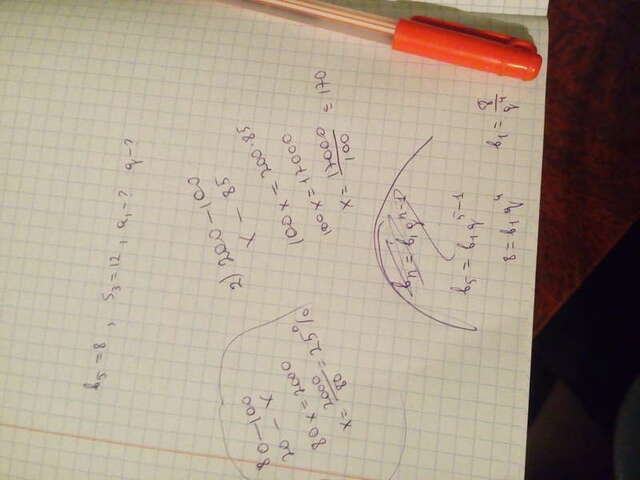 b₅ = 8 , S₃ = 12 , a₁ - ? q - ?
80 — 100
20 — x
80x = 2000
x = 2000/80 = 25%
2) 200 — 100
x — 85
100x = 200·85
100x = 17000
x = 17000/100 = 170
bₙ = b₁qⁿ⁻¹
b₅ = b₁q⁵⁻¹
8 = b₁q⁴
b₁ = 8/q⁴